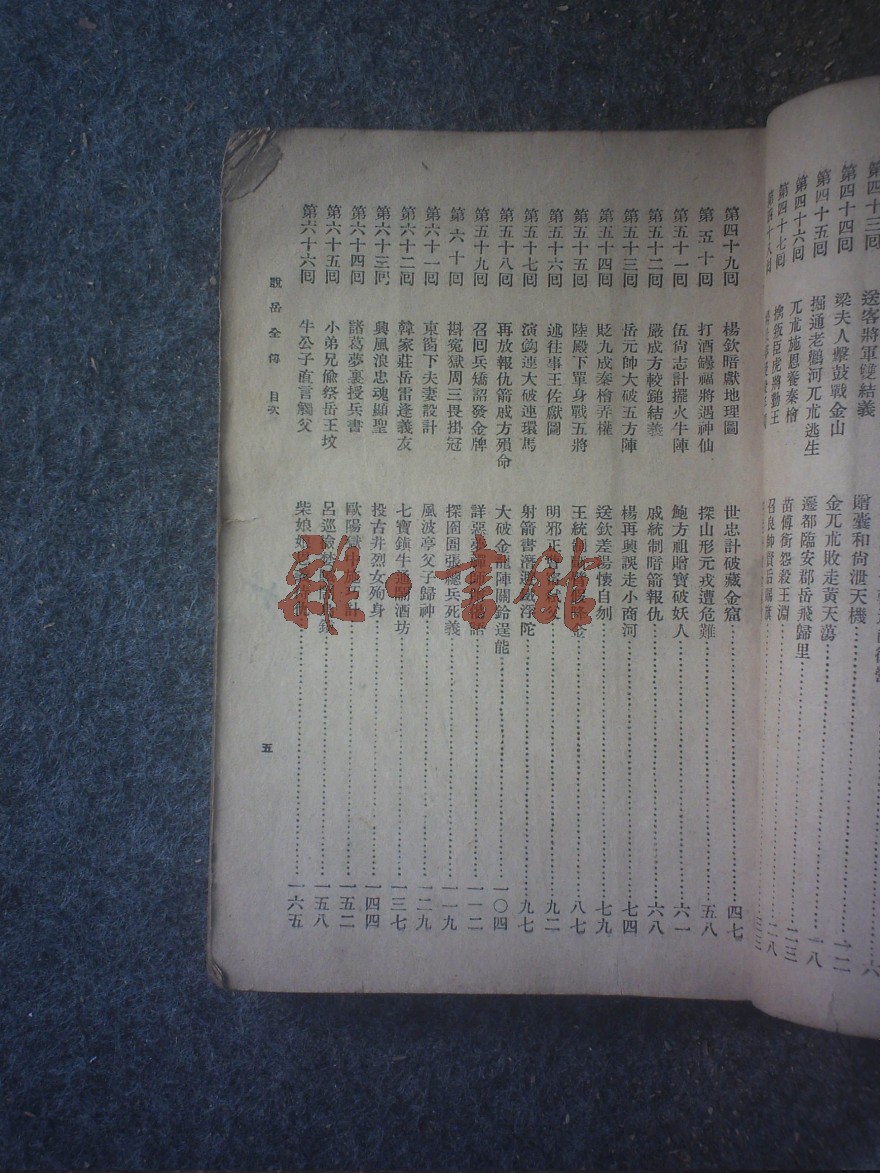 第四十三回 送客將軍雙結義 贈囊和尙泄天機 六
第四十四回 梁夫人擊鼓戰金山 金兀朮敗走黃天蕩 一二
第四十五回 掘通老鸛河兀朮逃生 遷都臨安郡岳飛歸里 一八
第四十六回 兀朮施恩養秦檜 苗傅銜怨殺王淵 二三
第四十七回 擒叛臣虎將勤王 召良帥賢后 二八
第四十八回
第四十九回 楊欽暗獻地理圖 世忠計破藏金窟 四七
第五十回 打酒罎福將遇神仙 探山形元戎遭危難 五八
第五十一回 伍尙志計擺火牛陣 鮑方祖贈寶破妖人 六一
第五十二回 嚴成方較鎚結義 戚統制暗箭報仇 六八
第五十三回 岳元帥大破五方陣 楊再興誤走小商河 七四
第五十四回 貶九成秦檜弄權 送欽差湯懷自刎 七九
第五十五回 陸殿下單身戰五將 王統制 八七
第五十六回 述往事王佐獻圖 明邪正曹 父 九二
第五十七回 演鈎連大破連環馬 射箭書潛 浮陀 九七
第五十八回 再放報仇箭戚方殞命 大破金龍陣關鈴逞能 一〇四
第五十九回 召囘兵矯詔發金牌 詳惡夢禪師 偈語 一一二
第六十回 勘寃獄周三畏掛冠 探囹圄張總兵死義 一一九
第六十一回 東窗下夫妻設計 風波亭父子歸神 一二九
第六十二回 韓家莊岳雷逢義友 七寶鎮牛通鬧酒坊 一三七
第六十三回 興風浪忠魂顯聖 投古井烈女殉身 一四四
第六十四回 諸葛夢裏授兵書 歐陽獄 計 一五二
第六十五回 小弟兄偸祭岳王坟 呂巡檢 一五八
第六十六回 牛公子直言觸父 柴娘娘 一六五
說岳全傳 目次
五
雜·書館